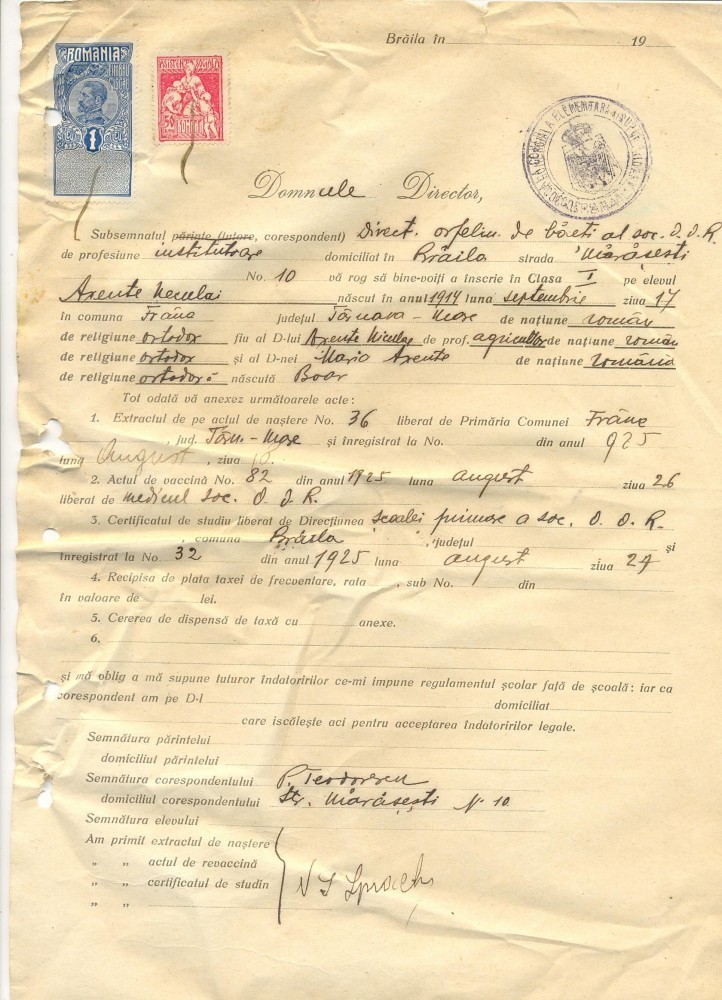 Brăila în 19
ROMÂNIA
1
ASISTENȚA SOCIALĂ
50
ROMÂNIA
Domnule Director,
Subsemnatul părinte (tutore, corespondent) Direct. orfelin. de băieti al soc. O. O. R.
de profesiune institutoare domiciliat în Brăila strada Mărăsești
No. 10 vă rog să bine-voiți a inscrie în Clasa I pe elevul
Arente Neculai născut în anul 1914 luna septembrie ziua 17
în comuna Frâua județul Târnava-Mare de națiune român
de religiune ortodox fiu al D-lui Arente Niculae de prof. agricultor de națiune român
de religiune ortodox și al D-nei Maria Arente de națiune română
de religiune ortodoxă născută Boar
Tot odată vă anexez următoarele acte :
1. Extractul de pe actul de naștere No. 36 liberat de Primăria Comunei Frâna
, jud. Târn.-Mare și înregistrat la No. din anul 925
luna August , ziua
2. Actul de vaccină No. 82 din anul 1925 luna august ziua 26
liberat de medicul soc. O. O. R.
3. Certificatul de studiu liberat de Direcțiunea școalei primare a soc. O. O. R.
, comuna Brăila , județul și
înregistrat la No. 32 din anul 1925 luna august ziua 24
4. Recipisa de plata taxei de frecventare, rata , sub No. din
în valoare de lei.
5. Cererea de dispensă de taxă cu anexe.
6.
și mă oblig a mă supune tuturor îndatoririlor ce-mi impune regulamentul școlar față de școală ; iar ca
corespondent am pe D-l domiciliat
care iscălește aci pentru acceptarea îndatoririlor legale.
Semnătura părintelui
domiciliul părintelui
Semnătura corespondentului P. Teodorescu
domiciliul corespondentului Str. Mărășești N. 10
Semnătura elevului
Am primit extractul de naștere
„ „ actul de revaccină
„ „ certificatul de studin
„ „